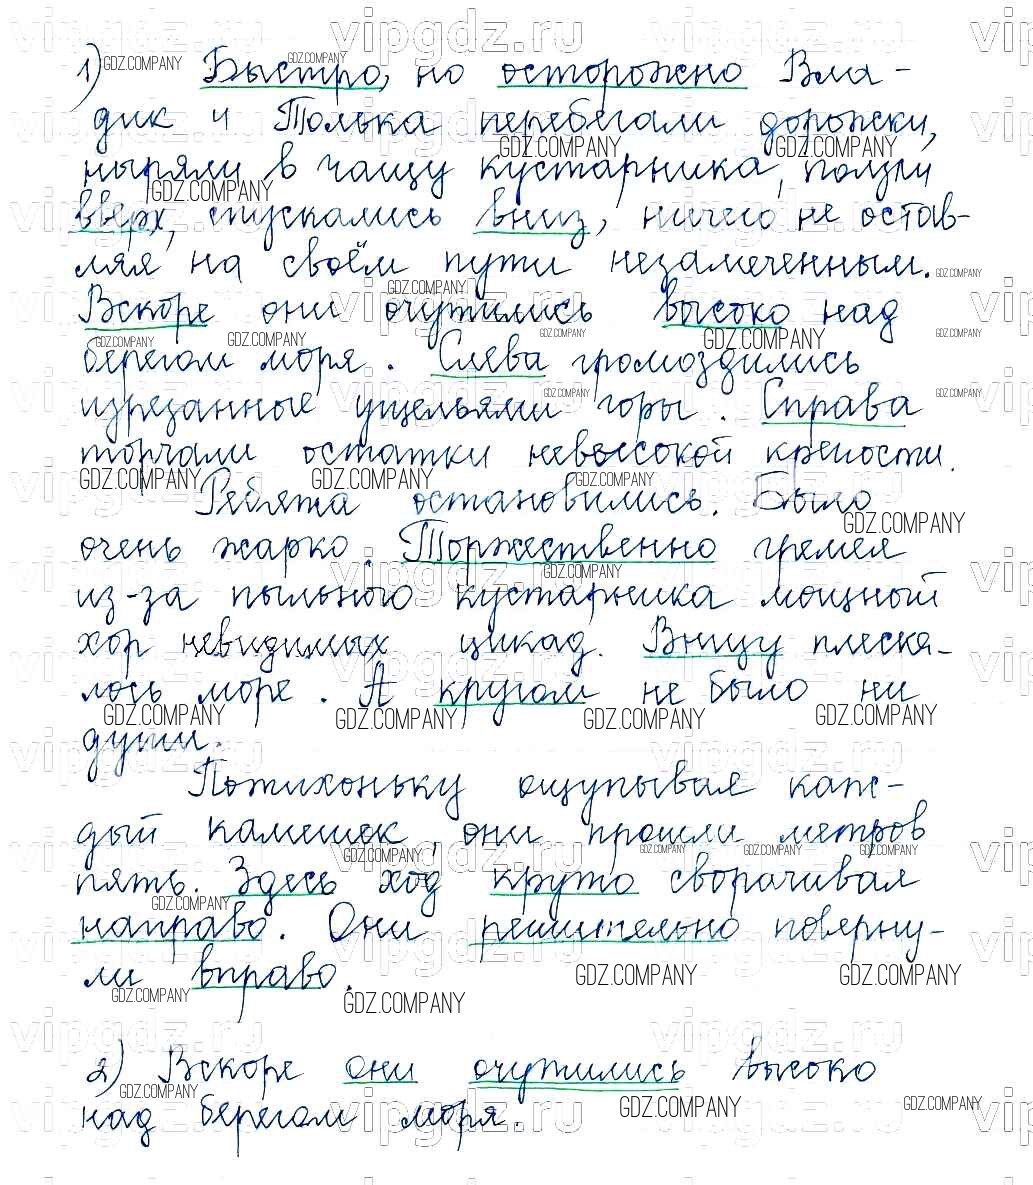 1) Быстро, но осторожно Вла-
дик и Толька перебегали дорожки,
ныряли в чащу кустарника, ползли
вверх, спускались вниз, ничего не остав-
ляя на своём пути незамеченным.
Вскоре они очутились высоко над
берегом моря. Слева громоздились
изрезанные ущельями горы. Справа
торчали остатки невысокой крепости.
Ребята остановились. Было
очень жарко. Торжественно гремел
из-за пыльного кустарника мощный
хор невидимых цикад. Внизу плеска-
лось море. А кругом не было ни
души.
Потихоньку ощупывая каж-
дый камешек, они прошли метров
пять. Здесь ход круто сворачивал
направо. Они решительно поверну-
ли вправо.
2) Вскоре они очутились высоко
над берегом моря.
vipgdz.ru
GDZ.COMPANY